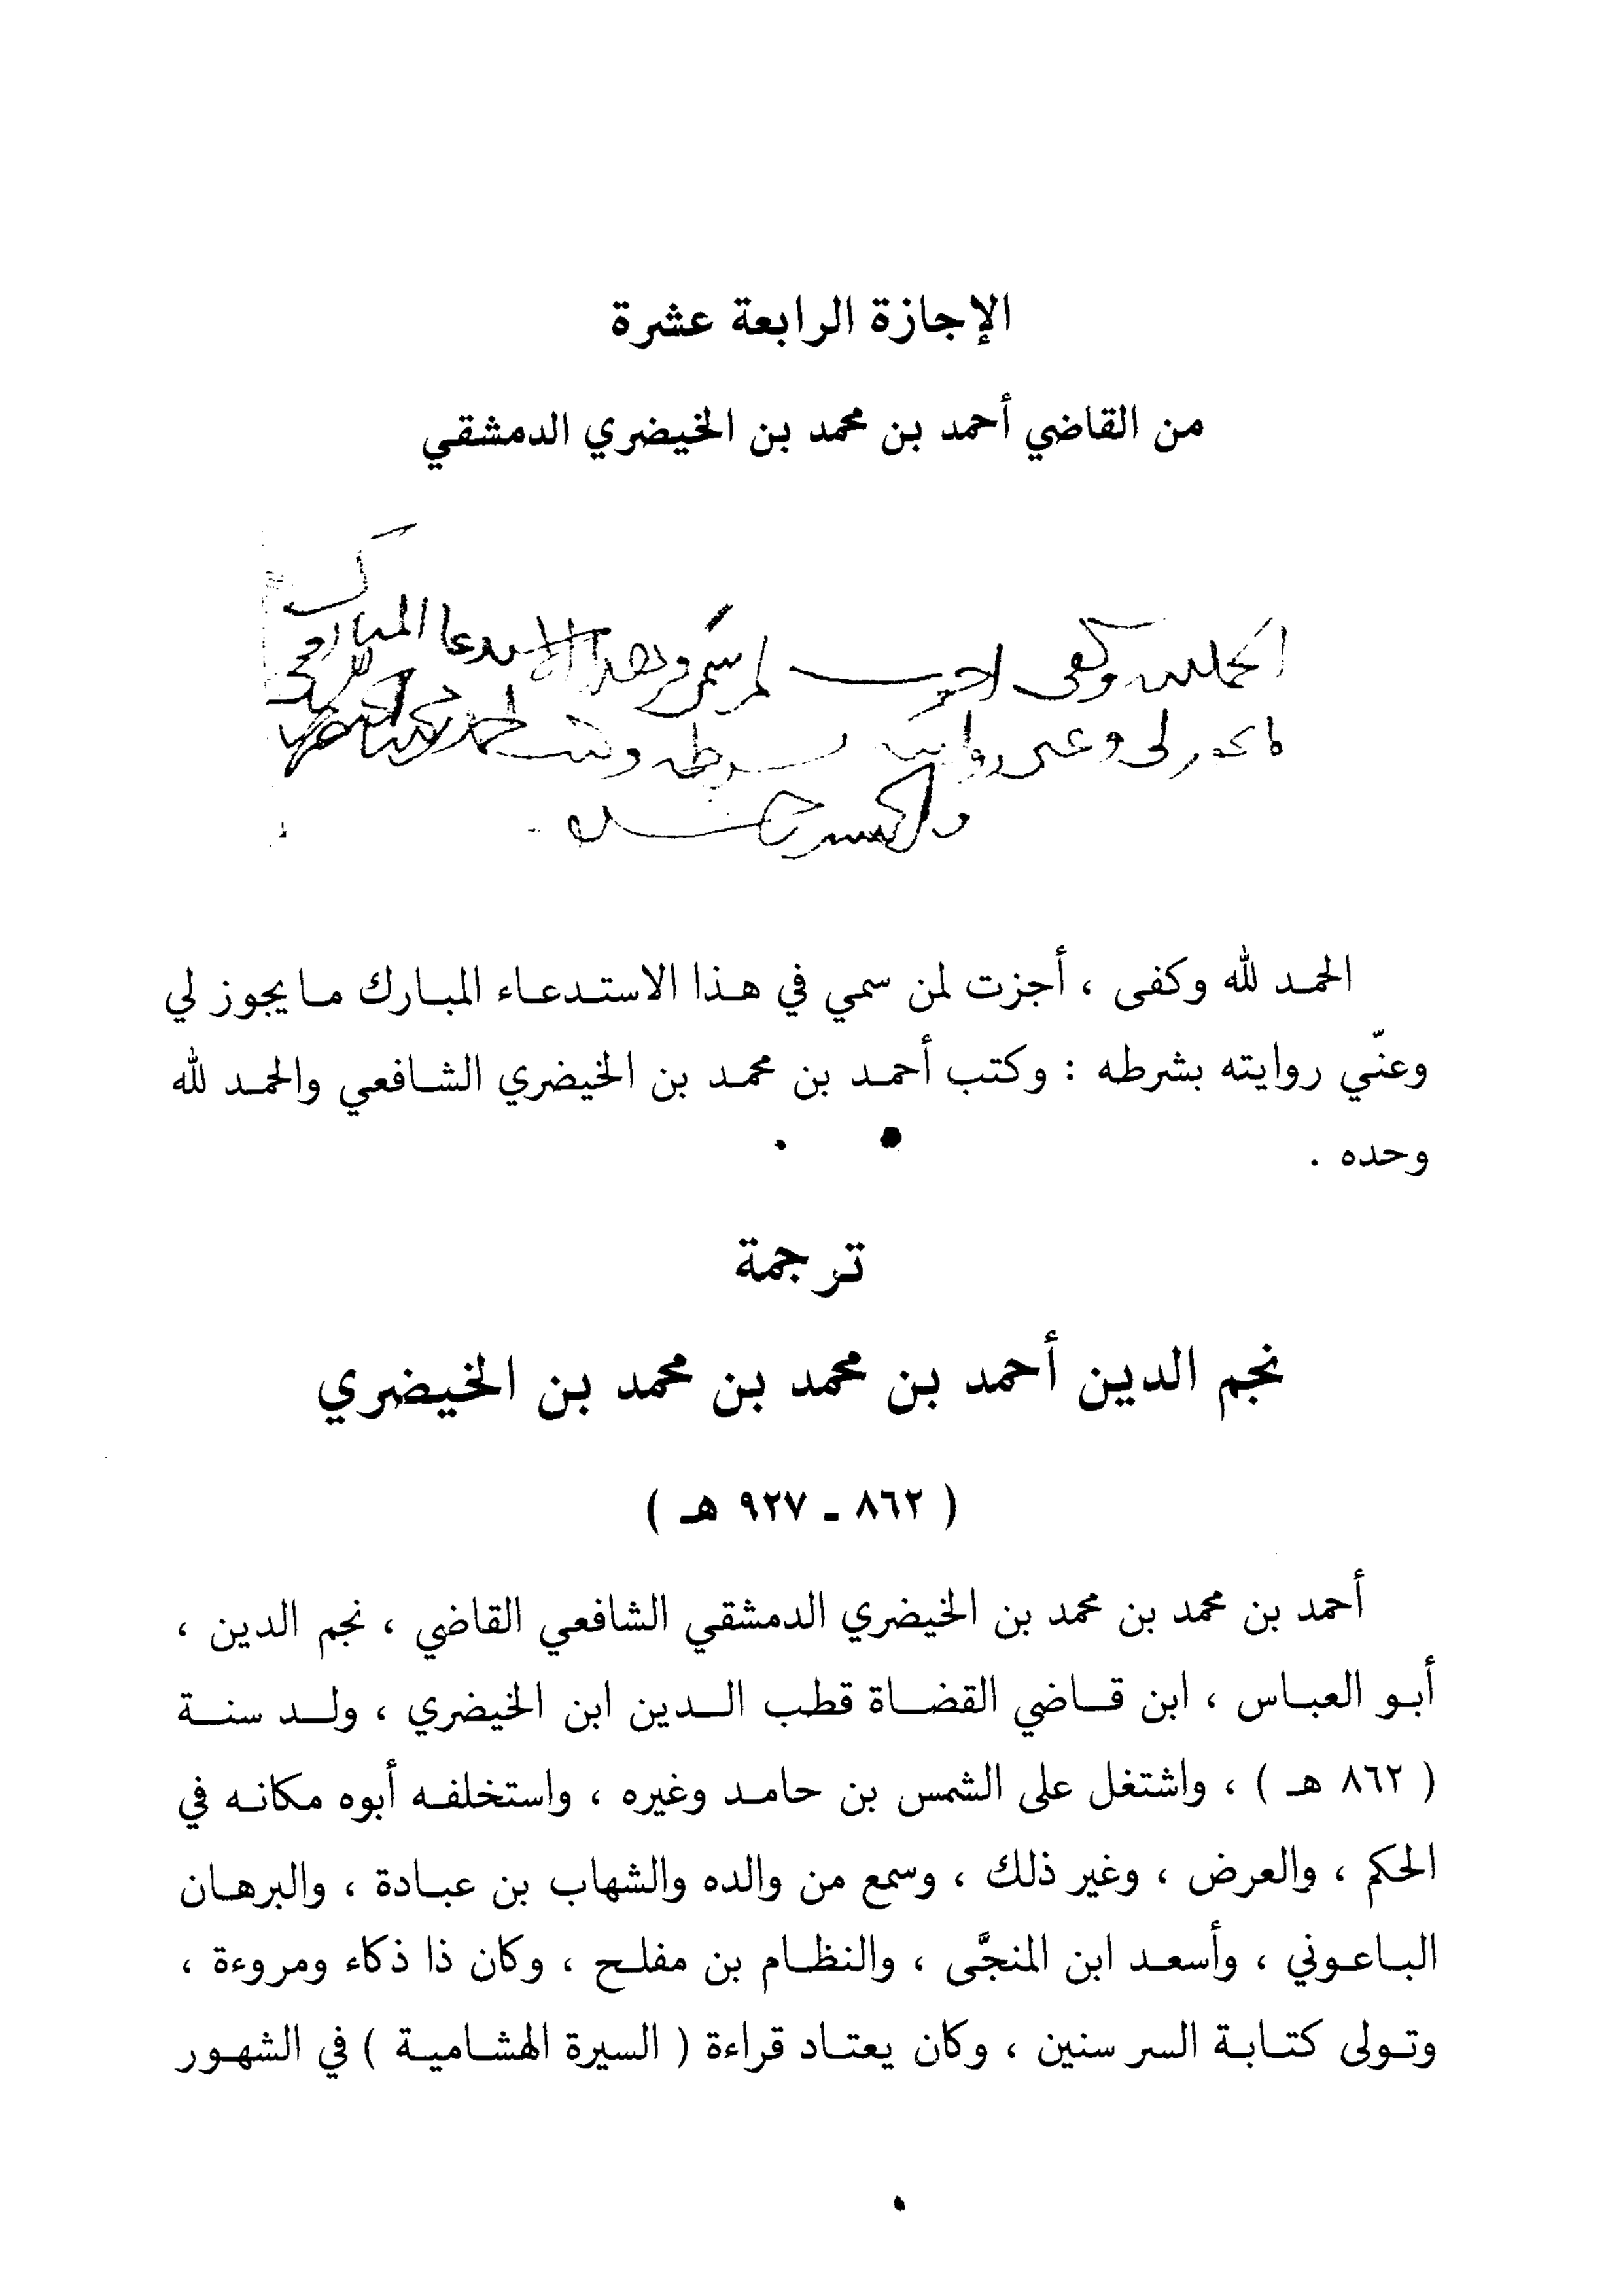 الإجازة الرابعة عشرة
من القاضي أحمد بن محمد بن الخيضري الدمشقي
الحمد لله وكفى أجزت لمن سمي في هذا الاستدعا المبارك
ما يجوز لي وعني روايته بشرطه وكتب أحمد بن محمد بن الخيضري الشافعي
والحمد لله وحده
الحمد لله وكفى ، أجزت لمن سمي في هذا الاستدعاء المبارك ما يجوز لي
وعنّي روايته بشرطه : وكتب أحمد بن محمد بن الخيضري الشافعي والحمد لله
وحده .
ترجمة
نجم الدين أحمد بن محمد بن محمد بن الخيضري
( ٨٦٢ - ٩٢٧ هـ )
أحمد بن محمد بن محمد بن الخيضري الدمشقي الشافعي القاضي ، نجم الدين ،
أبو العباس ، ابن قاضي القضاة قطب الدين ابن الخيضري ، ولد سنة
( ٨٦٢ هـ ) ، واشتغل على الشمس بن حامد وغيره ، واستخلفه أبوه مكانه في
الحكم ، والعرض ، وغير ذلك ، وسمع من والده والشهاب بن عبادة ، والبرهان
الباعوني ، وأسعد ابن المنجَّى ، والنظام بن مفلح ، وكان ذا ذكاء ومروءة ،
وتولى كتابة السر سنين ، وكان يعتاد قراءة ( السيرة الهشامية ) في الشهور